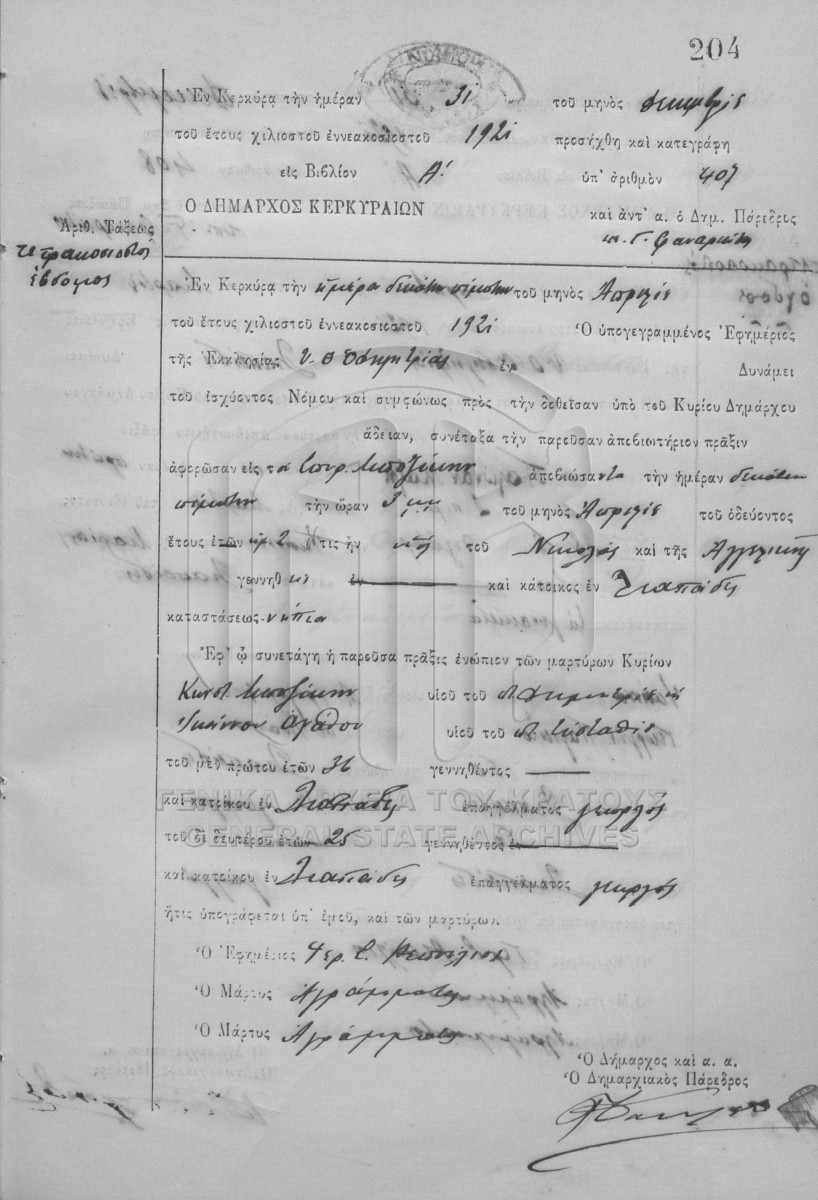 204
Ἐν Κερκύρᾳ τὴν ἡμέραν 31 τοῦ μηνὸς
τοῦ ἔτους χιλιοστοῦ ἐννεακοσιοστοῦ 1921 προσήχθη καὶ κατεγράφη
εἰς Βιβλίον Α! ὑπ' ἀριθμὸν 407
Ὁ ΔΗΜΑΡΧΟΣ ΚΕΡΚΥΡΑΙΩΝ
καὶ ἀντ' α. ὁ Δημ. Πάρεδρος
Ἀριθ. Τάξεως
τετρακοσιοστός
ἕβδομος
Ἐν Κερκύρᾳ τὴν ἡμέρα δεκάτην πέμπτην τοῦ μηνὸς Ἀπριλίς
τοῦ ἔτους χιλιοστοῦ ἐννεακοσιοστοῦ 1921 Ὁ ὑπογεγραμμένος Ἐφημέριος
τῆς Ἐκκλησίας Υ. Θ Ὁδηγητρίας ἐν Δυνάμει
τοῦ ἰσχύοντος Νόμου καὶ συμφώνως πρὸς τὴν δοθεῖσαν ὑπὸ τοῦ Κυρίου Δημάρχου
ἄδειαν, συνέταξα τὴν παροῦσαν ἀπεβιωτήριον πρᾶξιν
ἀφορῶσαν εἰς τὸν Σπυρ. ἀποβιώσαντα τὴν ἡμέραν δεκάτην
πέμπτην τὴν ὥραν 3 μμ τοῦ μηνὸς Ἀπριλίς τοῦ ὁδεύοντος
ἔτους ἐτῶν 2 ὅτις ἦν υἱὸς τοῦ Νικολάς καὶ τῆς Ἀγγελικῆς
γεννηθ ἐν καὶ κάτοικος ἐν Λιαπάδες
καταστάσεως νήπιον
Ἐφ' ᾧ συνετάγη ἡ παροῦσα πρᾶξις ἐνώπιον τῶν μαρτύρων Κυρίων
Κωνστ. υἱοῦ τοῦ Δημητρίς
Ἰωάννου Ἀγάθου υἱοῦ τοῦ Εὐσταθίς
τοῦ μὲν πρώτου ἐτῶν 36 γεννηθέντος
καὶ κατοίκου ἐν Λιαπάδες ἐπαγγέλματος γεωργός
τοῦ δὲ δευτέρου ἐτῶν 25 γεννηθέντος ἐν
καὶ κατοίκου ἐν Λιαπάδες ἐπαγγέλματος γεωργός
ἥτις ὑπογράφεται ὑπ' ἐμοῦ, καὶ τῶν μαρτύρων.
Ὁ Ἐφημέριος Ἱερ.
Ὁ Μάρτυς Ἀγράμματος
Ὁ Μάρτυς Ἀγράμματος
Ὁ Δήμαρχος καὶ α. α.
Ὁ Δημαρχιακὸς Πάρεδρος
ΓΕΝΙΚΑ ΑΡΧΕΙΑ ΤΟΥ ΚΡΑΤΟΥΣ
GENERAL STATE ARCHIVES